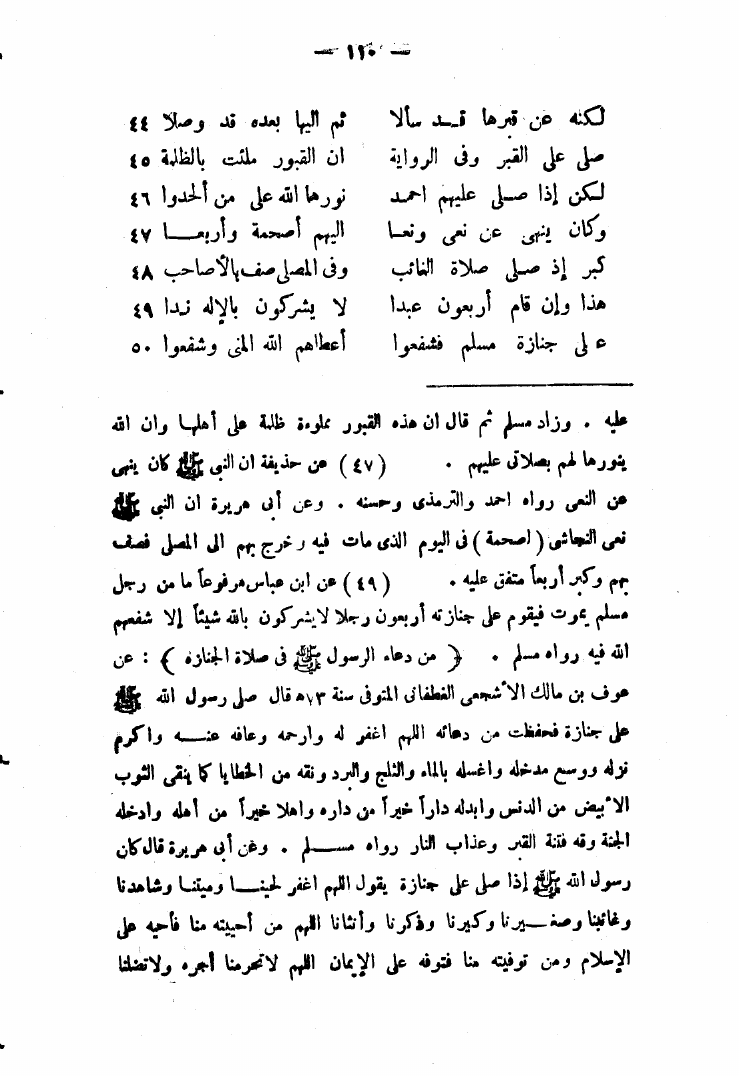 — ١٢٠ —
لكنه عن قبرها قــد سألا ثم اليها بعده قد وصلا ٤٤
صلى على القبر وفى الرواية ان القبور ملئت بالظلمة ٤٥
لكن إذا صــلى عليهم احمد نورها الله على من ألحدوا ٤٦
وكان ينهى عن نعى ونعــا اليهم أصحمة وأربعــا ٤٧
كبر إذ صلى صلاة الغائب وفى المصلى صف بالأصاحب ٤٨
هذا وإن قام أربعون عبدا لا يشركون بالإله ندا ٤٩
على جنازة مسلم فشفعوا أعطاهم الله المنى وشفعوا ٥٠
عليه . وزاد مسلم ثم قال ان هذه القبور مملوءة ظلمة على أهلها وان الله
ينورها لهم بصلاتى عليهم . (٤٧) عن حذيفة ان النبى ﷺ كان ينهى
عن النعى رواه احمد والترمذى وحسنه . وعن أبى هريرة ان النبى ﷺ
نعى النجاشى (اصحمة) فى اليوم الذى مات فيه وخرج بهم الى المصلى فصف
بهم وكبر أربعاً متفق عليه . (٤٩) عن ابن عباس مرفوعاً ما من رجل
مسلم يموت فيقوم على جنازته أربعون رجلا لايشركون بالله شيئاً إلا شفعهم
الله فيه رواه مسلم . ﴿ من دعاء الرسول ﷺ فى صلاة الجنازة ﴾ : عن
عوف بن مالك الأشجعى الغطفانى المتوفى سنة ٧٣ه قال صلى رسول الله ﷺ
على جنازة فحفظت من دعائه اللهم اغفر له وارحمه وعافه عنــه واكرم
نزله ووسع مدخله واغسله بالماء والثلج والبرد ونقه من الخطايا كما ينقى الثوب
الأبيض من الدنس وابدله داراً خيراً من داره واهلا خيراً من أهله وادخله
الجنة وقه فتنة القبر وعذاب النار رواه مســلم . وعن أبى هريرة قال كان
رسول الله ﷺ إذا صلى على جنازة يقول اللهم اغفر لحينــا وميتنــا وشاهدنا
وغائبنا وصغــيرنا وكبيرنا وذكرنا وأنثانا اللهم من أحييته منا فأحيه على
الإسلام ومن توفيته منا فتوفه على الإيمان اللهم لاتحرمنا أجره ولاتضلنا